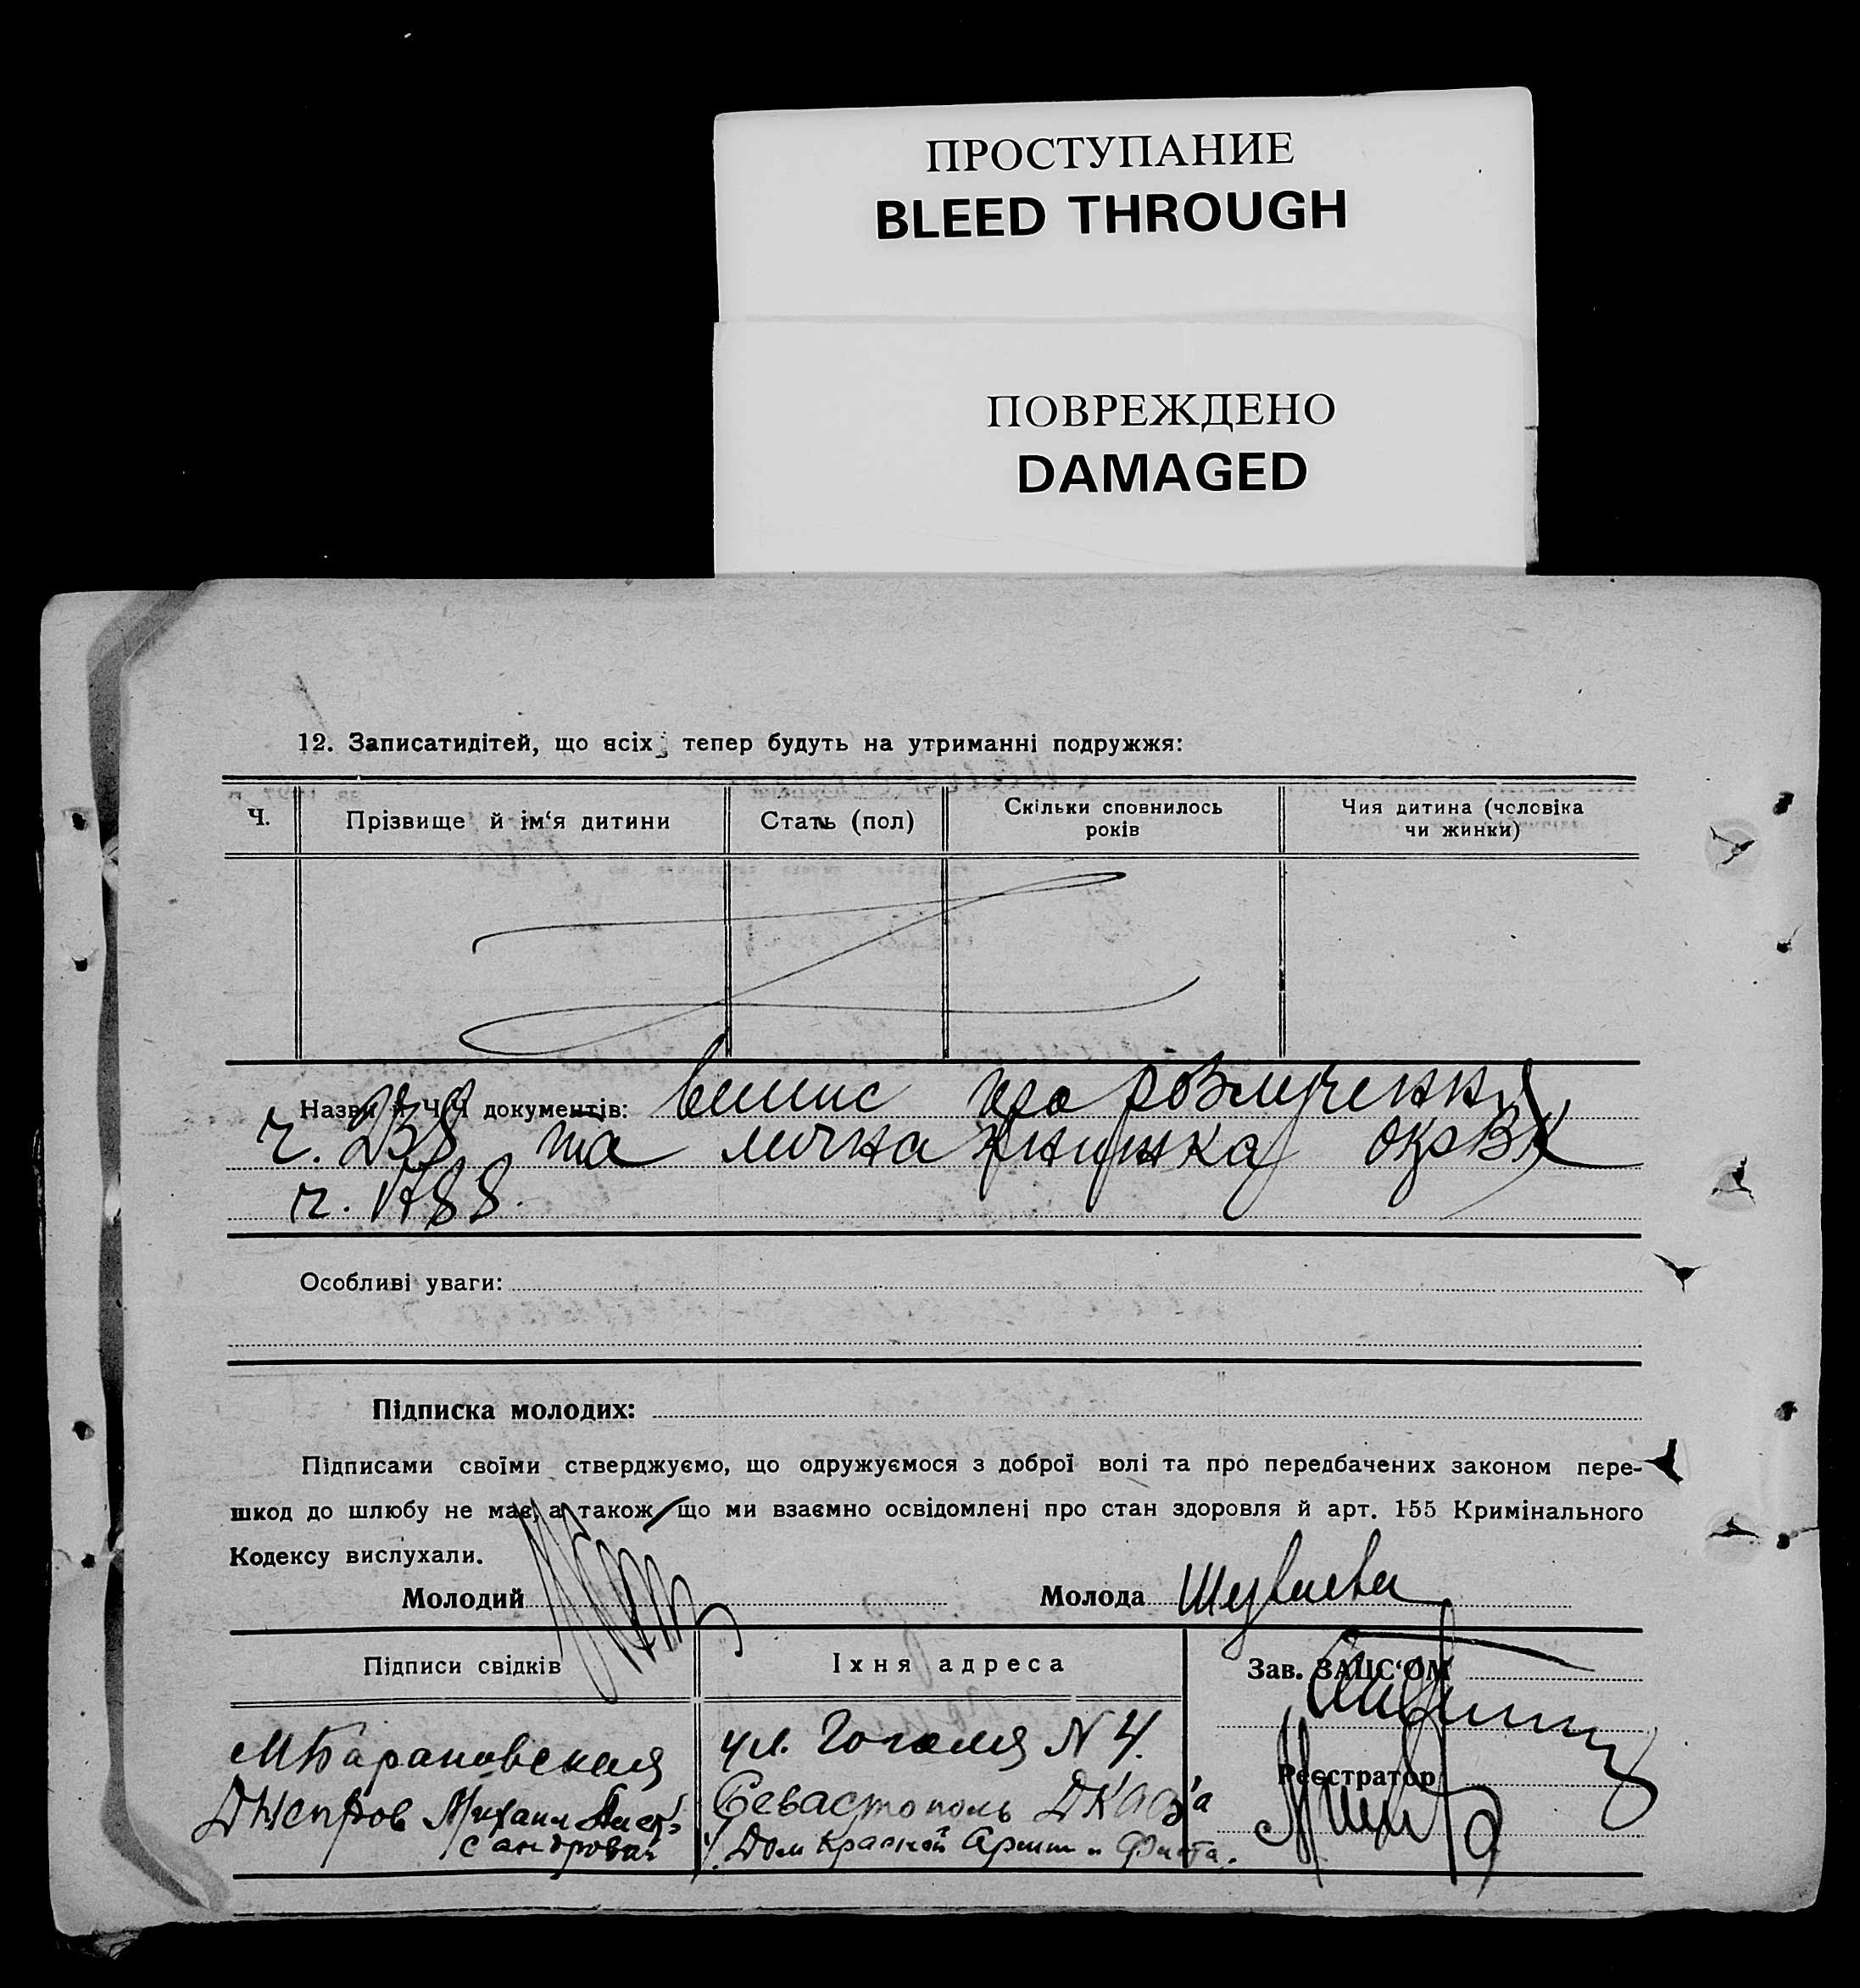 ПРОСТУПАНИЕ
BLEED THROUGH
ПОВРЕЖДЕНО
DAMAGED
12. Записатидітей, що всіх тепер будуть на утриманні подружжя:
Ч.
Прізвище й ім‘я дитини
Стать (пол)
Скільки сповнилось
років
Чия дитина (чоловіка
чи жинки)
Назви й Ч.Ч документів: випис про розлучення
ч. 238 та лична книжка окрВК
ч. 1788.
Особливі уваги:
Підписка молодих:
Підписами своїми стверджуємо, що одружуємося з доброї волі та про передбачених законом пере-
шкод до шлюбу не має, а також що ми взаємно освідомлені про стан здоровля й арт. 155 Кримінального
Кодексу вислухали.
Молодий
Молода
Підписи свідків
Їхня адреса
Зав. ЗАЦС‘ОМ
М Барановская
ул. Гоголя N 4.
Реєстратор
Днепров Михаил Алек-
сандрович
Севастополь ДКАФ'а
Дом Красной Армии и Флота.